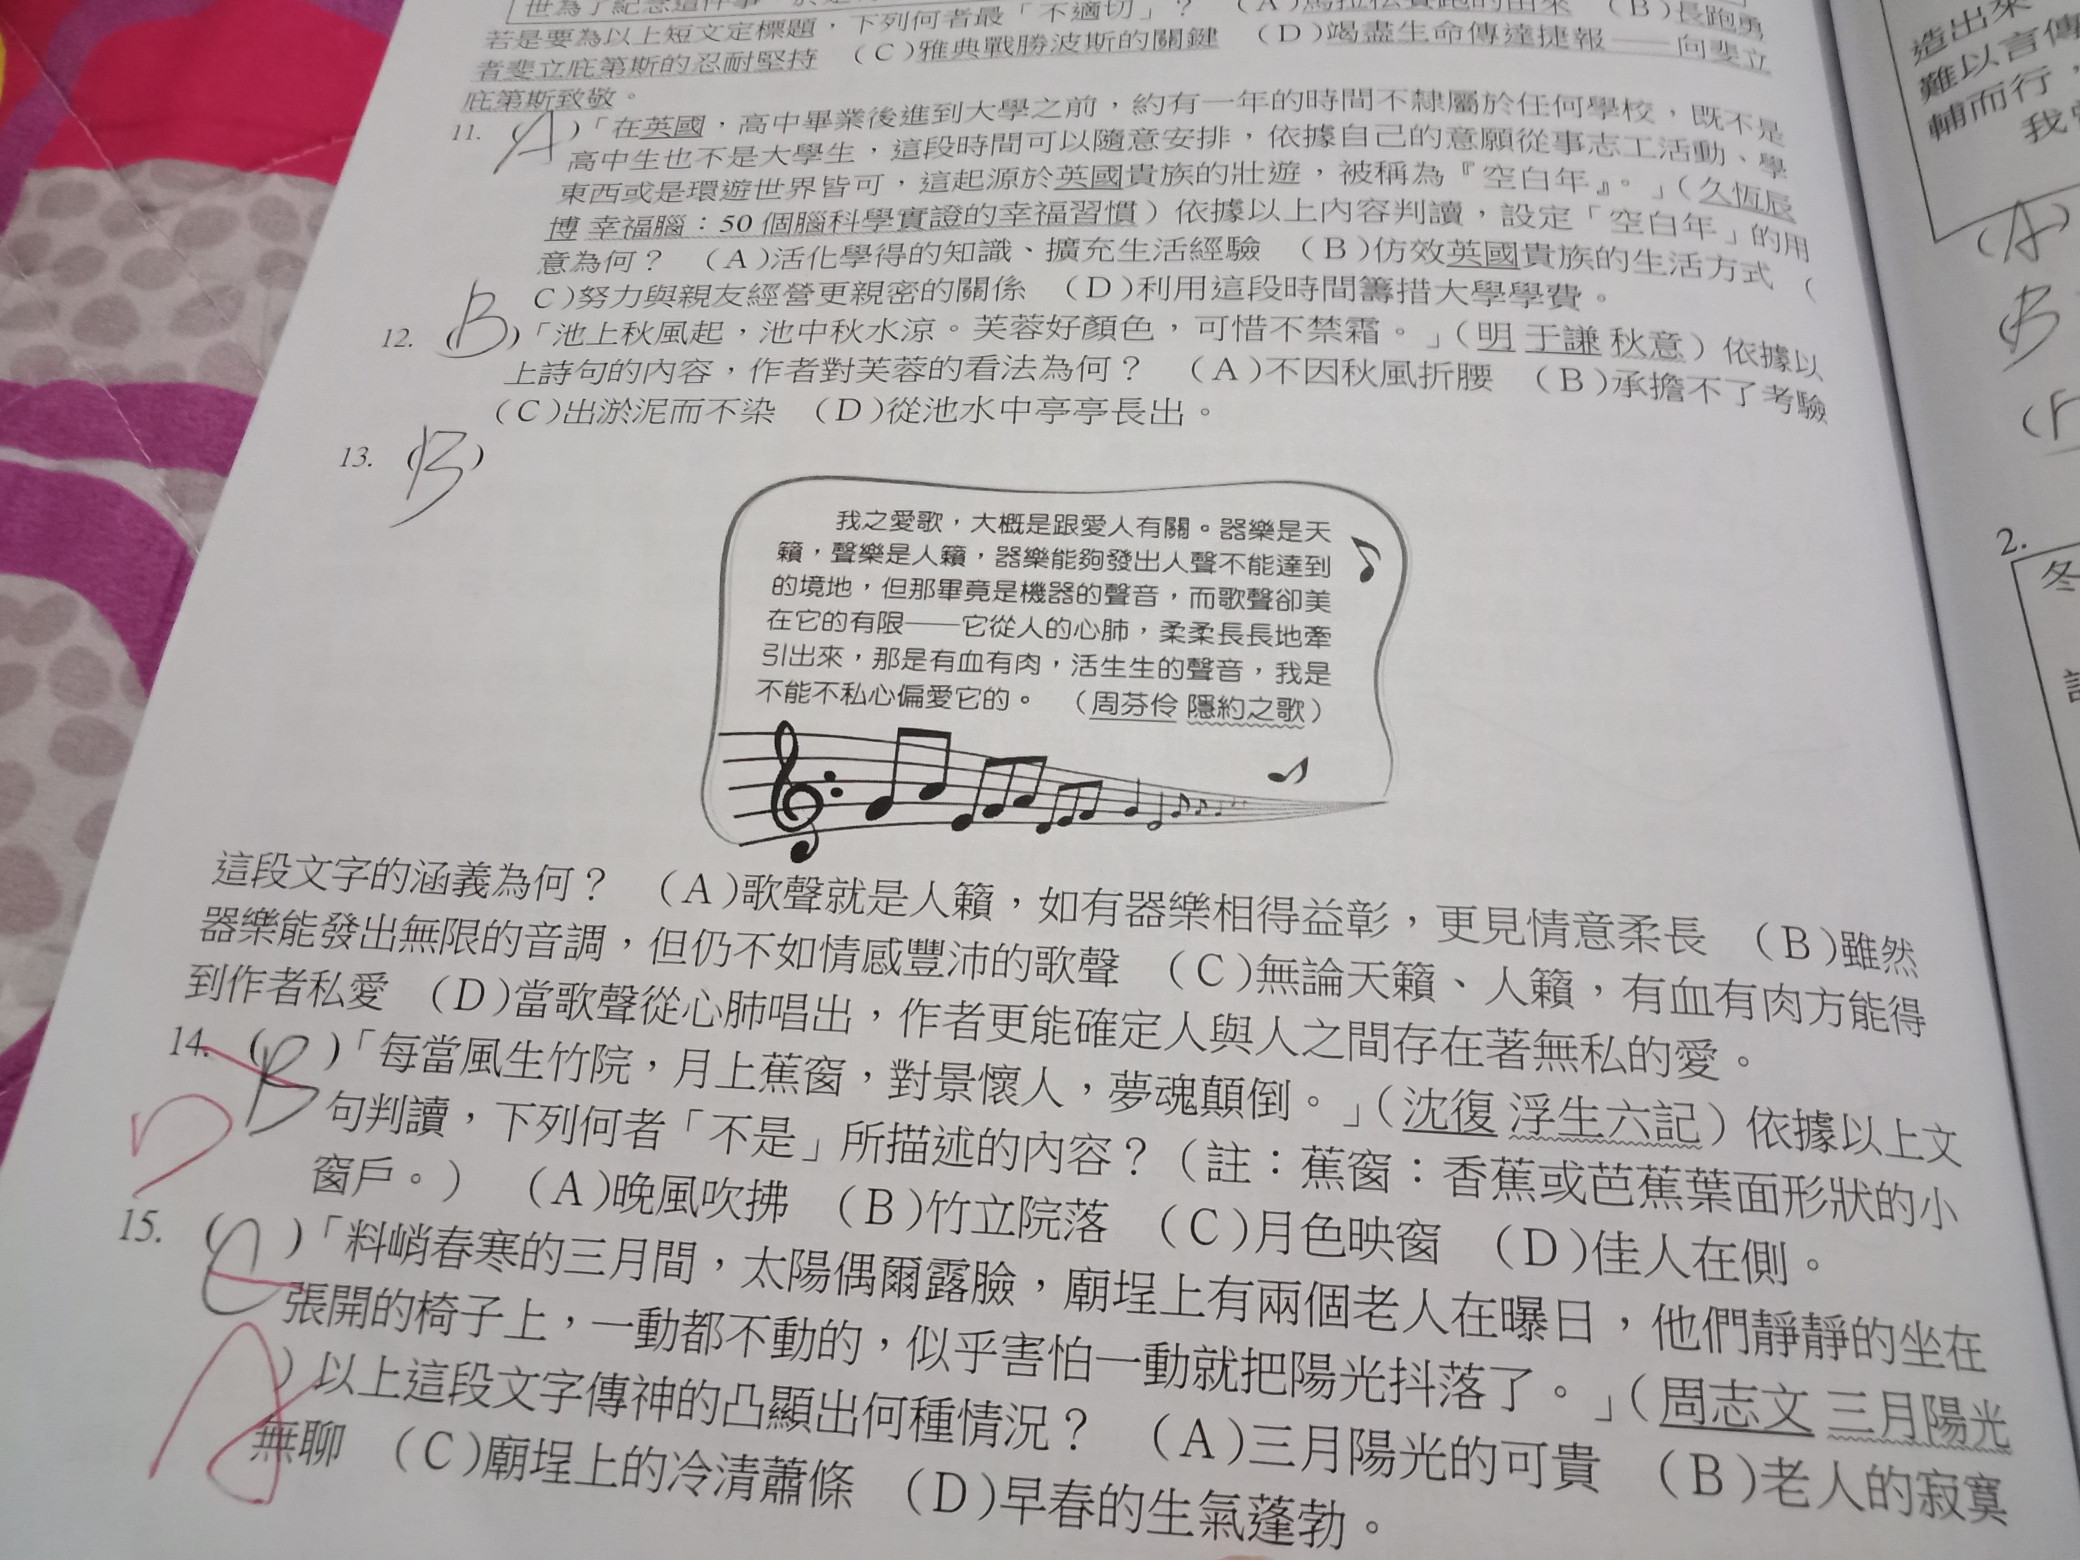 若是要為以上短文定標題，下列何者最「不適切」？ （A）馬拉松賽跑的由來 （B）長跑勇
者斐立庇第斯的忍耐堅持 （C）雅典戰勝波斯的關鍵 （D）竭盡生命傳達捷報——向斐立
庇第斯致敬。
11. （A）「在英國，高中畢業後進到大學之前，約有一年的時間不隸屬於任何學校，既不是
高中生也不是大學生，這段時間可以隨意安排，依據自己的意願從事志工活動、學
東西或是環遊世界皆可，這起源於英國貴族的壯遊，被稱為『空白年』。」（久恆辰
博 幸福腦：50 個腦科學實證的幸福習慣）依據以上內容判讀，設定「空白年」的用
意為何？ （A）活化學得的知識、擴充生活經驗 （B）仿效英國貴族的生活方式 （
C）努力與親友經營更親密的關係 （D）利用這段時間籌措大學學費。
12. （B）「池上秋風起，池中秋水涼。芙蓉好顏色，可惜不禁霜。」（明 于謙 秋意）依據以
上詩句的內容，作者對芙蓉的看法為何？ （A）不因秋風折腰 （B）承擔不了考驗
（C）出淤泥而不染 （D）從池水中亭亭長出。
13. （B）
我之愛歌，大概是跟愛人有關。器樂是天
籟，聲樂是人籟，器樂能夠發出人聲不能達到
的境地，但那畢竟是機器的聲音，而歌聲卻美
在它的有限——它從人的心肺，柔柔長長地牽
引出來，那是有血有肉，活生生的聲音，我是
不能不私心偏愛它的。 （周芬伶 隱約之歌）
這段文字的涵義為何？ （A）歌聲就是人籟，如有器樂相得益彰，更見情意柔長 （B）雖然
器樂能發出無限的音調，但仍不如情感豐沛的歌聲 （C）無論天籟、人籟，有血有肉方能得
到作者私愛 （D）當歌聲從心肺唱出，作者更能確定人與人之間存在著無私的愛。
14. （B）「每當風生竹院，月上蕉窗，對景懷人，夢魂顛倒。」（沈復 浮生六記）依據以上文
句判讀，下列何者「不是」所描述的內容？（註：蕉窗：香蕉或芭蕉葉面形狀的小
窗戶。） （A）晚風吹拂 （B）竹立院落 （C）月色映窗 （D）佳人在側。
D
15. （C）「料峭春寒的三月間，太陽偶爾露臉，廟埕上有兩個老人在曝日，他們靜靜的坐在
張開的椅子上，一動都不動的，似乎害怕一動就把陽光抖落了。」（周志文 三月陽光
）以上這段文字傳神的凸顯出何種情況？ （A）三月陽光的可貴 （B）老人的寂寞
無聊 （C）廟埕上的冷清蕭條 （D）早春的生氣蓬勃。
A
造出來
難以言傳
輔而行，
（A）
B
2.
冬